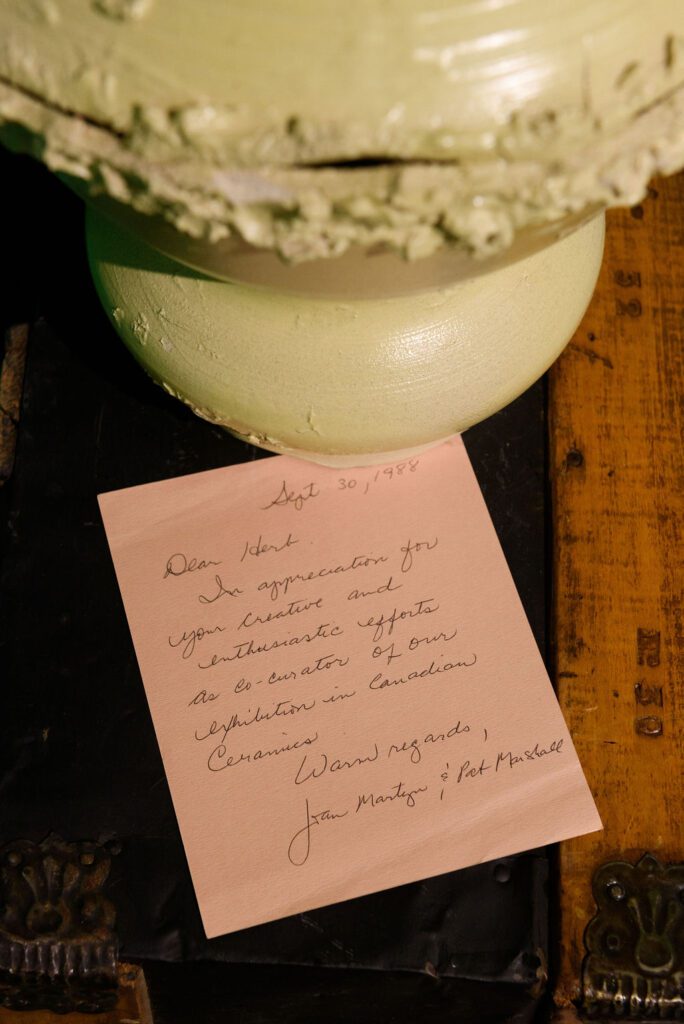 Sept 30, 1988
Dear Herb.
In appreciation for
your creative and
enthusiastic efforts
as co-curator of our
exhibition in Canadian
Ceramics
Warm regards,
Joan Martyn & Pat Marshall
32
Nº 39